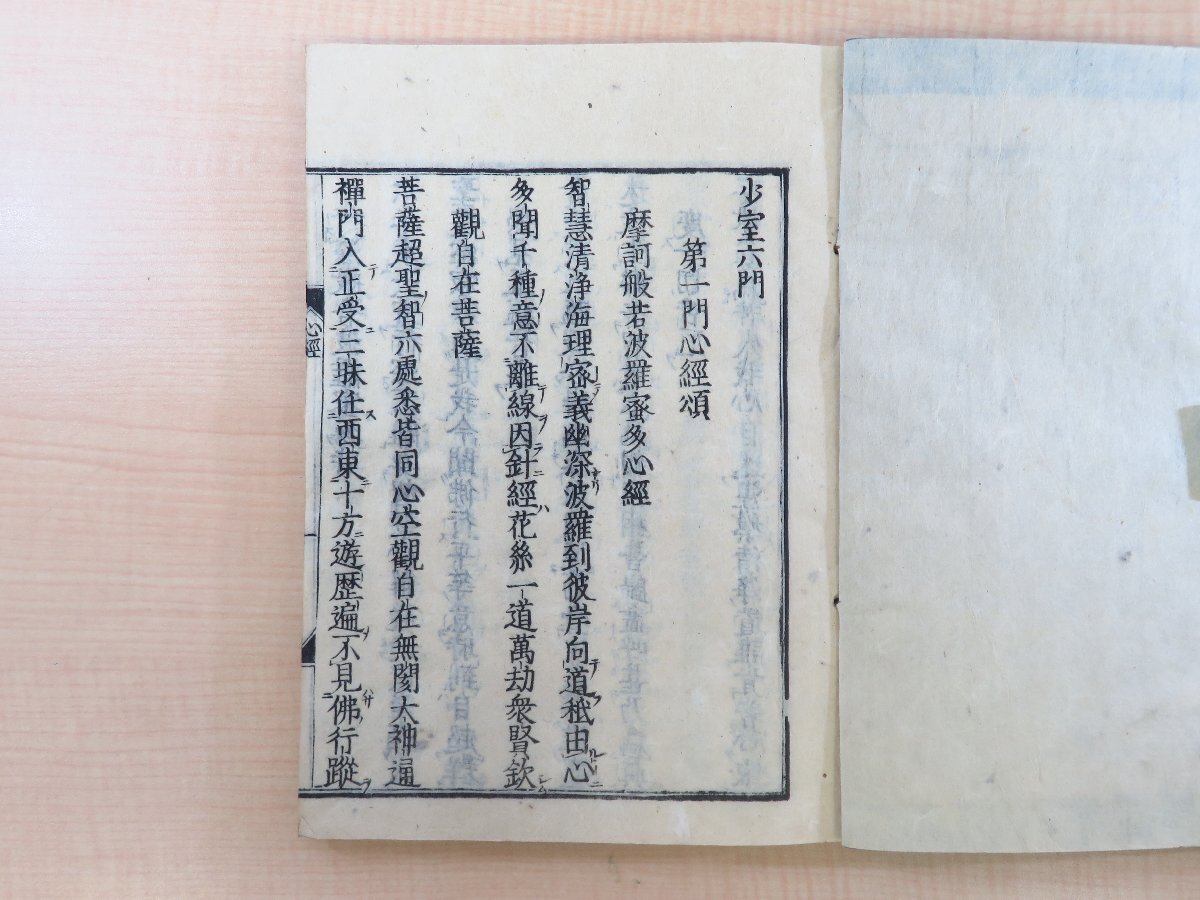 少室六門
第一門心經頌
摩訶般若波羅蜜多心經
智慧清淨海理密義幽深波羅到彼岸向道秖由心
多聞千種意不離線因針經花絲一道萬劫衆賢欽
觀自在菩薩
菩薩超聖智六處悉皆同心空觀自在無閡大神通
禪門入正受三昧任西東十方遊歷遍不見佛行蹤
心經